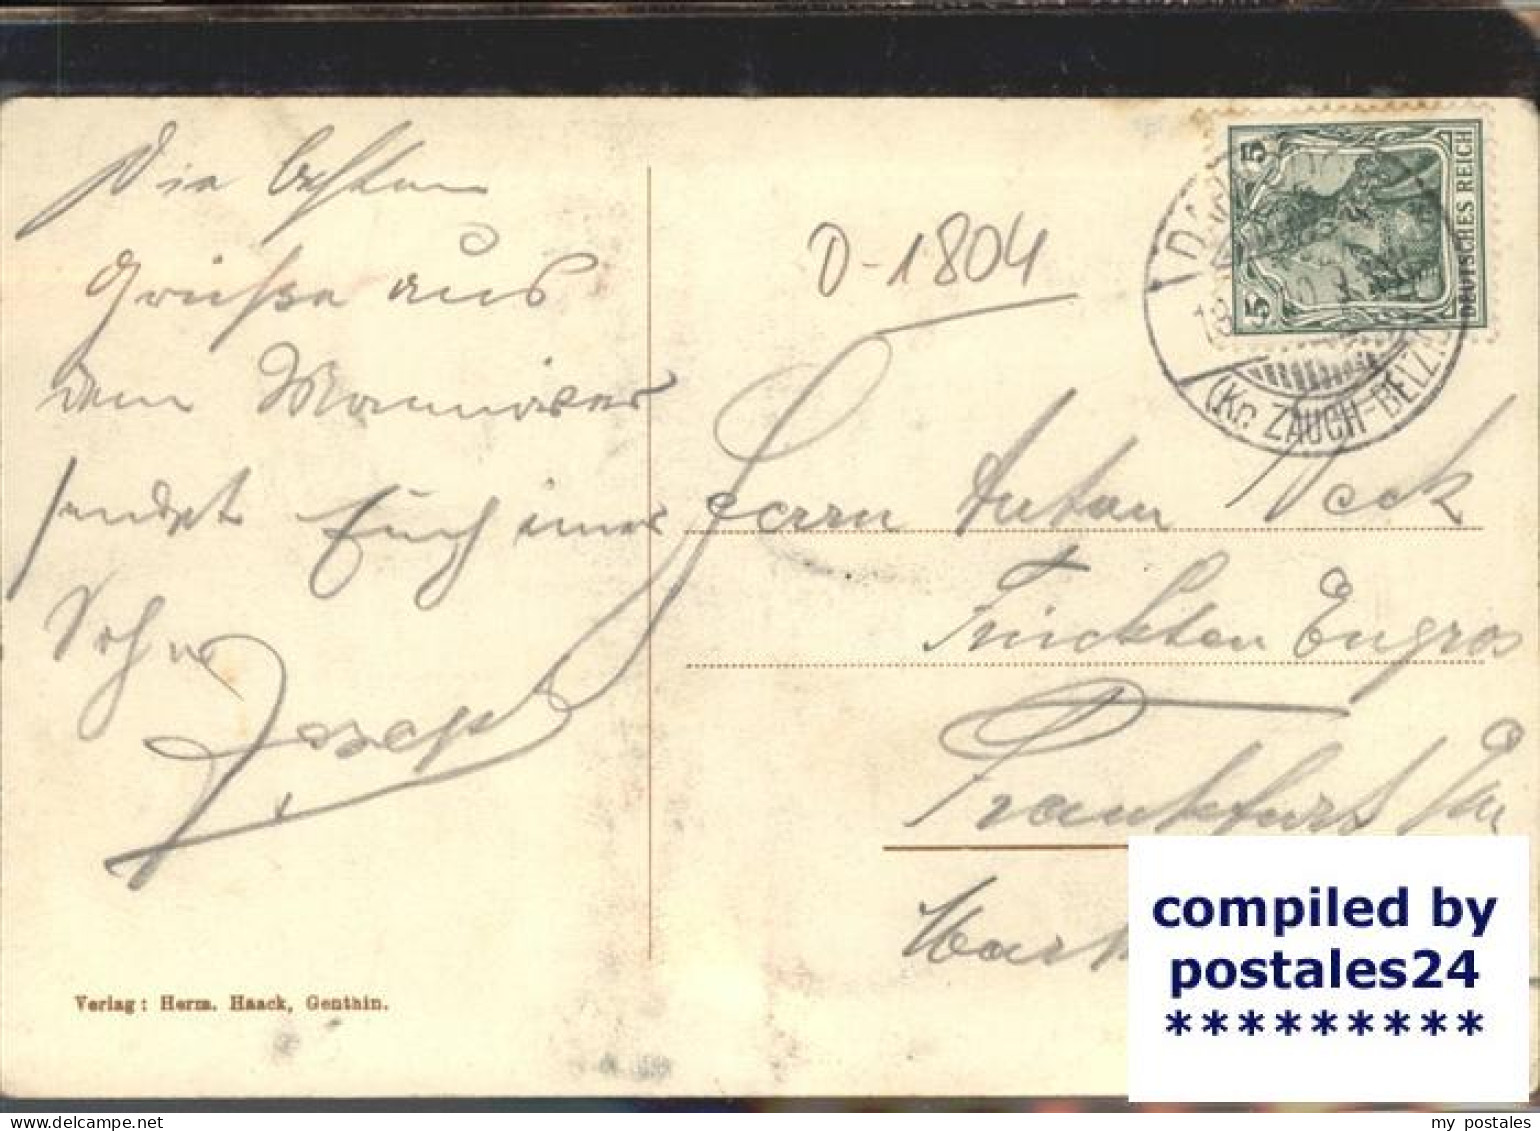 Die besten
Grüße aus
dem Manöver
sendet Euch immer
Sohn
Joseph
Verlag: Herm. Haack, Genthin.
D-1804
5
5
DEUTSCHES REICH
(Kr. ZAUCH-BELZIG
Herrn Anton Neck
Früchten Engros
Frankfurt am
compiled by
postales24
*********
my postales